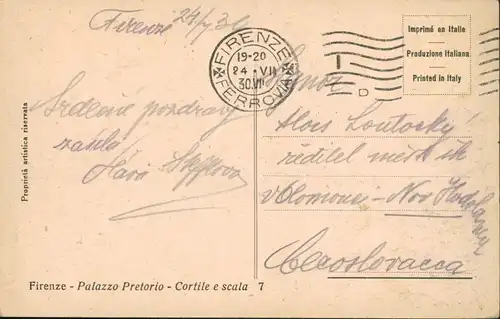 Firenze 24/7 30
FIRENZE
19-20
24 · VII
30.VIII
FERROVIA
Imprimé en Italie
Produzione Italiana
Printed in Italy
D
Srdečné pozdravy
zasílá
Signor
Alois Loutocký
ředitel měst
v Olomouci - Nov
Cecoslovacca
Proprietà artistica riservata
Firenze - Palazzo Pretorio - Cortile e scala 7